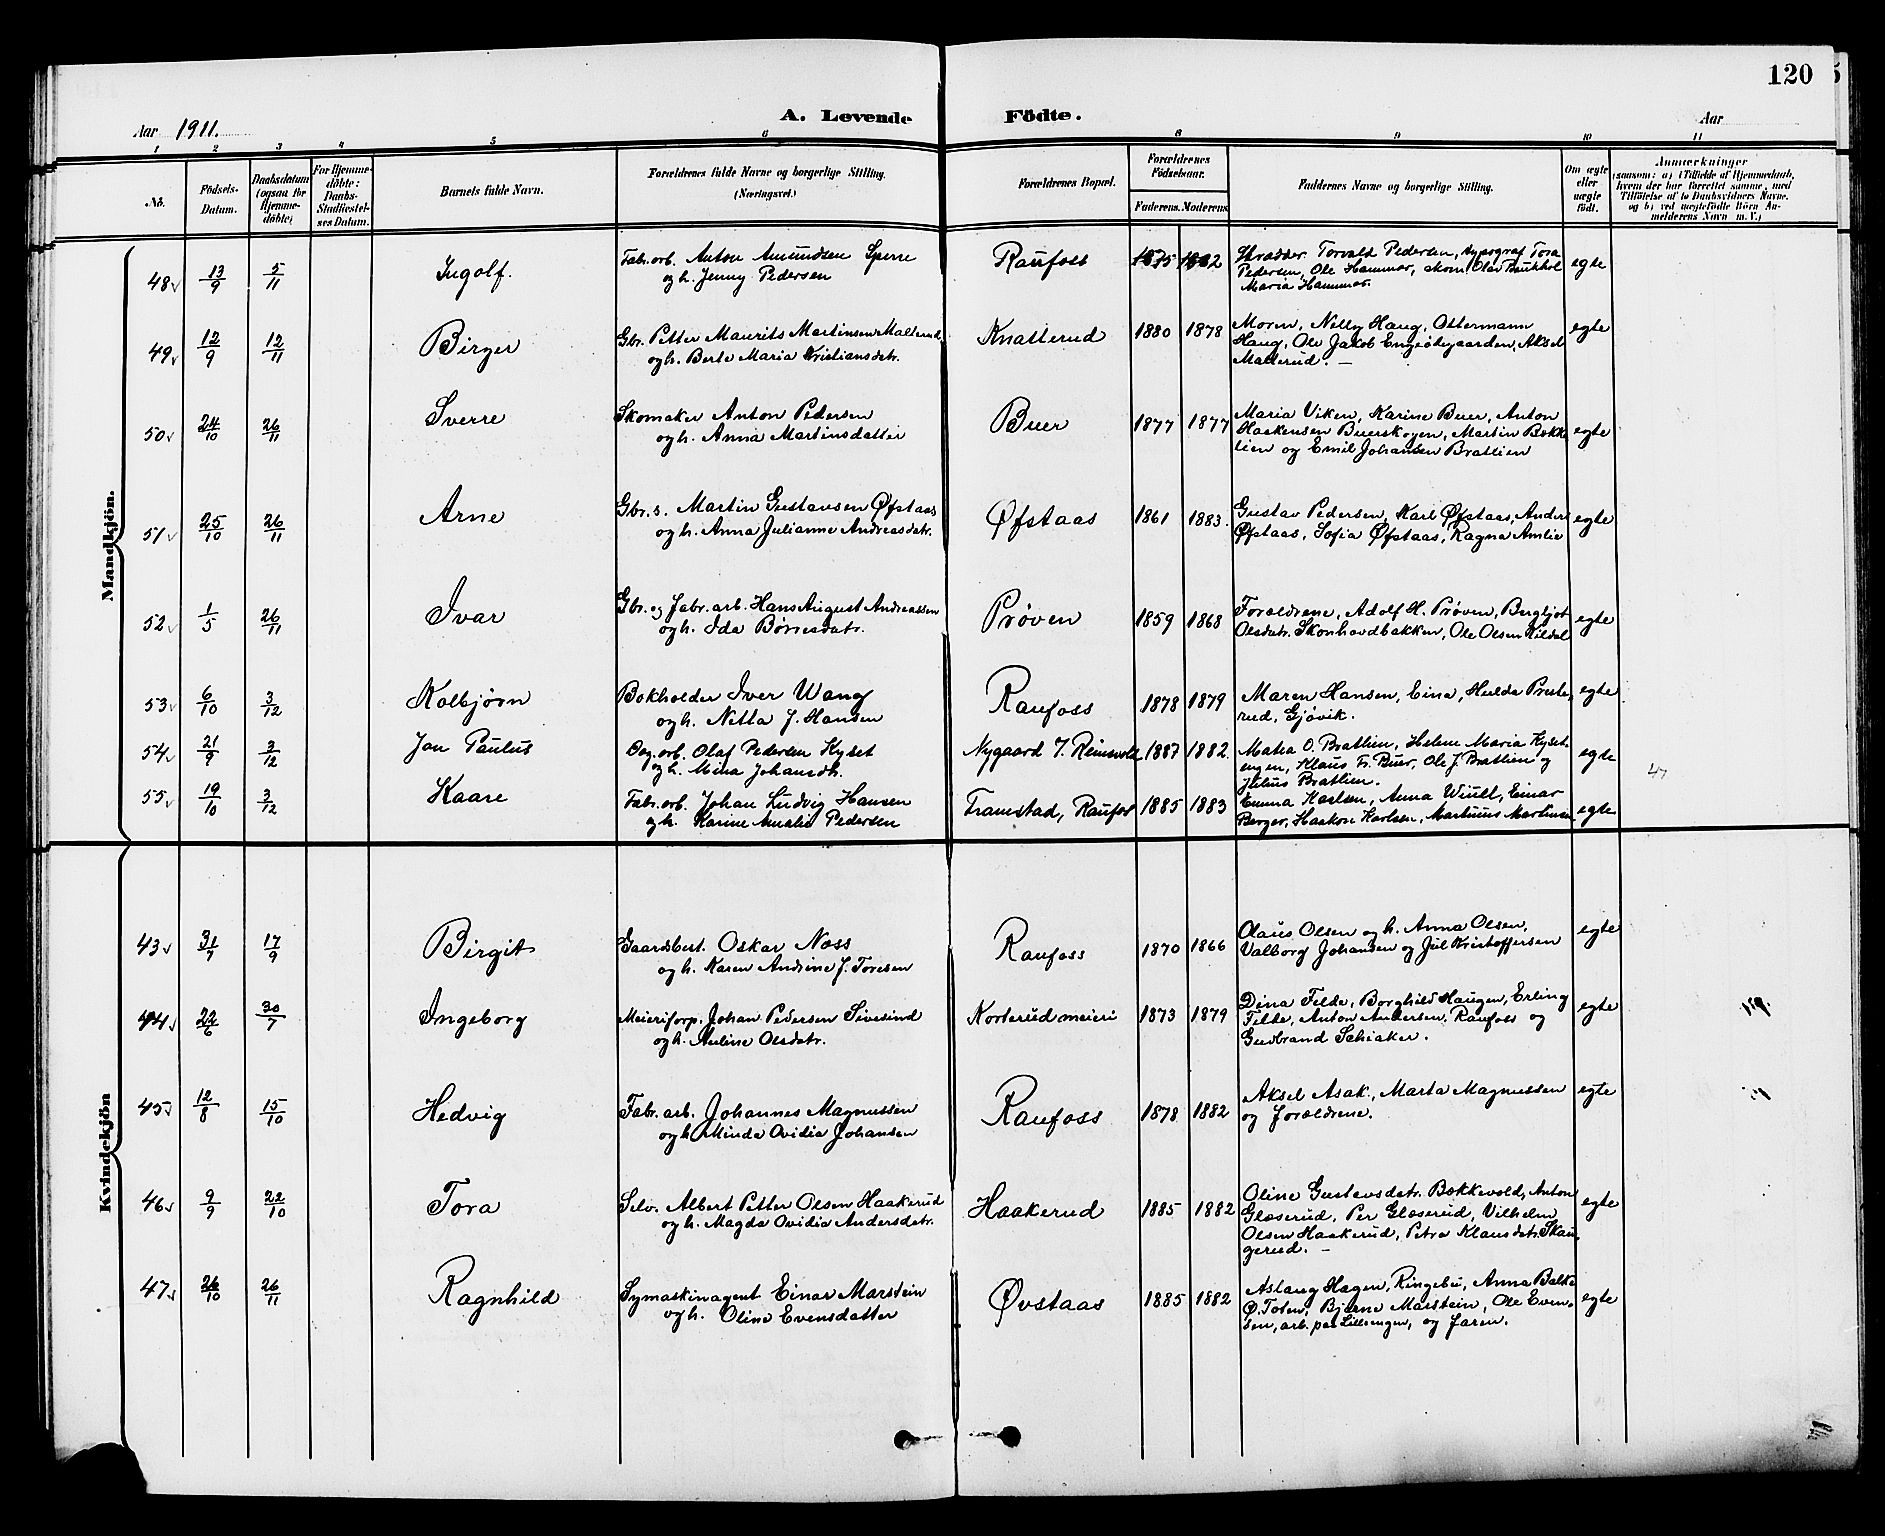 120
Aar 1911.
A. Levende Födte.
Aar
1 2 3 4 5 6 8 9 10 11
No.
Födsels-Datum.
Daabsdatum (ogsaa for Hjemmedöbte)
For Hjemmedöbte: Daabs-Stadfæstelses Datum.
Barnets fulde Navn.
Forældrenes fulde Navne og borgerlige Stilling. (Næringsvei.)
Forældrenes Bopæl.
Forældrenes Födselsaar.
Faderens. Moderens.
Faddernes Navne og borgerlige Stilling.
Om ægte eller uægte födt.
Anmærkninger
(saasom: a) i Tilfælde af Hjemmedaab, hvem der har forrettet samme, med Tilföielse af to Daabsvidners Navne. og b) ved uægtefödte Börn Anmelderens Navn m. V.)
Mandkjön.
48 13/9 5/11 Ingolf. Fab. arb. Anton Amundsen Sperre
og h. Jenny Pedersen Raufoss 1875 1882 Torvald Pedersen, typograf Tora
Pedersen, Ole Hammer, Olav
Maria Hammer. egte
49 12/9 12/11 Birger Gbr. Petter Maurits Martinsen Malterud
og h. Berte Maria Kristiansdtr. Knatterud 1880 1878 Moren, Nelly Haug, Ostermann
Haug, Ole Jakob Engeødegaarden, Aksel
Malterud. — egte
50 24/10 26/11 Sverre Skomaker Anton Pedersen
og h. Anna Martinsdatter Buer 1877 1877 Maria Viken, Karine Buer, Anton
Haakensen Buerskogen, Martin Bakke
lien og Emil Johansen Bratlien egte
51 25/10 26/11 Arne Gbr. s. Martin Gustavsen Øfstaas
og h. Anna Julianne Andreasdtr. Øfstaas 1861 1883. Gustav Pedersen, Karl Øfstaas, Anders
Øfstaas, Sofia Øfstaas, Ragna Amlie egte
52 1/5 26/11 Ivar Gbr. og fabr. arb. Hans August Andreassen
og h. Ida Børresdatr. Prøven 1859 1868 Forældrene, Adolf H. Prøven, Bergljot
Olsdatr. Skonhovdbakken, Ole Olsen Kildal egte
53 6/10 3/12 Kolbjørn Bokholder Iver Wang
og h. Nitta J. Hansen Raufoss 1878 1879 Maren Hansen, Eina, Hulda Preste,
rud, Gjøvik. egte
54 21/9 3/12 Jan Paulus Dag. arb. Olaf Pedersen Kyset
og h. Mina Johansdtr. Nygaard i. Reinsvold 1887 1882. Matea O. Bratlien, Helene Maria Kyset-
engen, Klaus Fr. Buer, Ole J. Bratlien og
Julius Bratlien. egte 47
55 19/10 3/12 Kaare Fabr. arb. Johan Ludvig Hansen
og h. Karine Amalie Pedersen Tranestad, Raufos 1885 1883 Emma Karlsen, Anna Wiull, Einar
Berger, Haakon Karlsen, Martinius Martinsen egte
Kvindekjön
43 31/7 17/9 Birgit Gaardsbest. Oskar Noss
og h. Karen Andrine J. Toresen Raufoss 1870 1866 Olaus Olsen og h. Anna Olsen,
Valborg Johansen og Jul Kristoffersen egte
44 22/6 30/7 Ingeborg Meieriforp. Johan Pedersen Sivesind
og h. Auline Olsdatr. Korterud meieri 1873 1879 Dina Felde, Borghild Haugen, Erling
Felde, Anton Andersen, Raufoss og
Gudbrand Schiaker. egte
45 12/8 15/10 Hedvig Fabr. arb. Johannes Magnussen
og h. Minda Ovidia Johansen Raufoss 1878 1882 Aksel Asak, Marta Magnussen
og forældrene. egte
46 9/9 22/10 Tora Selv. Albert Petter Olsen Haakerud
og h. Magda Ovidia Andersdatr. Haakerud 1885 1882 Oline Gustavsdatr. Bakkevold, Anton
Glæserud, Per Glæserud, Vilhelm
Olsen Haakerud, Petra Klausdatr. Skau,
gerud. — egte
47 26/10 26/11 Ragnhild Symaskinagent Einar Marstein
og h. Oline Evensdatter Øvstaas 1885 1882 Aslaug Hagen, Ringebu, Anna Balke
Ø. Toten, Bjarne Marstein, Ole Even-
sen, arb. paa Lilleengen, og faren. egte